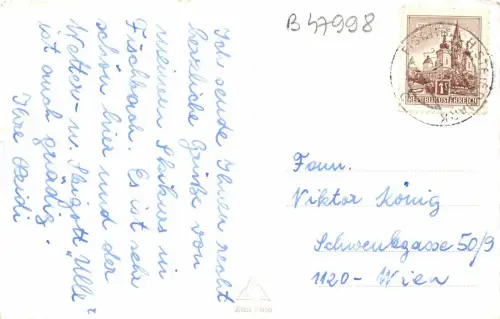 B 47998
Ich sende Ihnen recht
herzliche Grüße von
meinem Skikurs in
Fischbach. Es ist sehr
schön hier und der
Wetter- u. Skigott „Ulle"
ist auch gnädig.
Ihre Heidi
REPUBLIK ÖSTERREICH
Fam.
Viktor König
Schwenkgasse 50/9
1120 - Wien